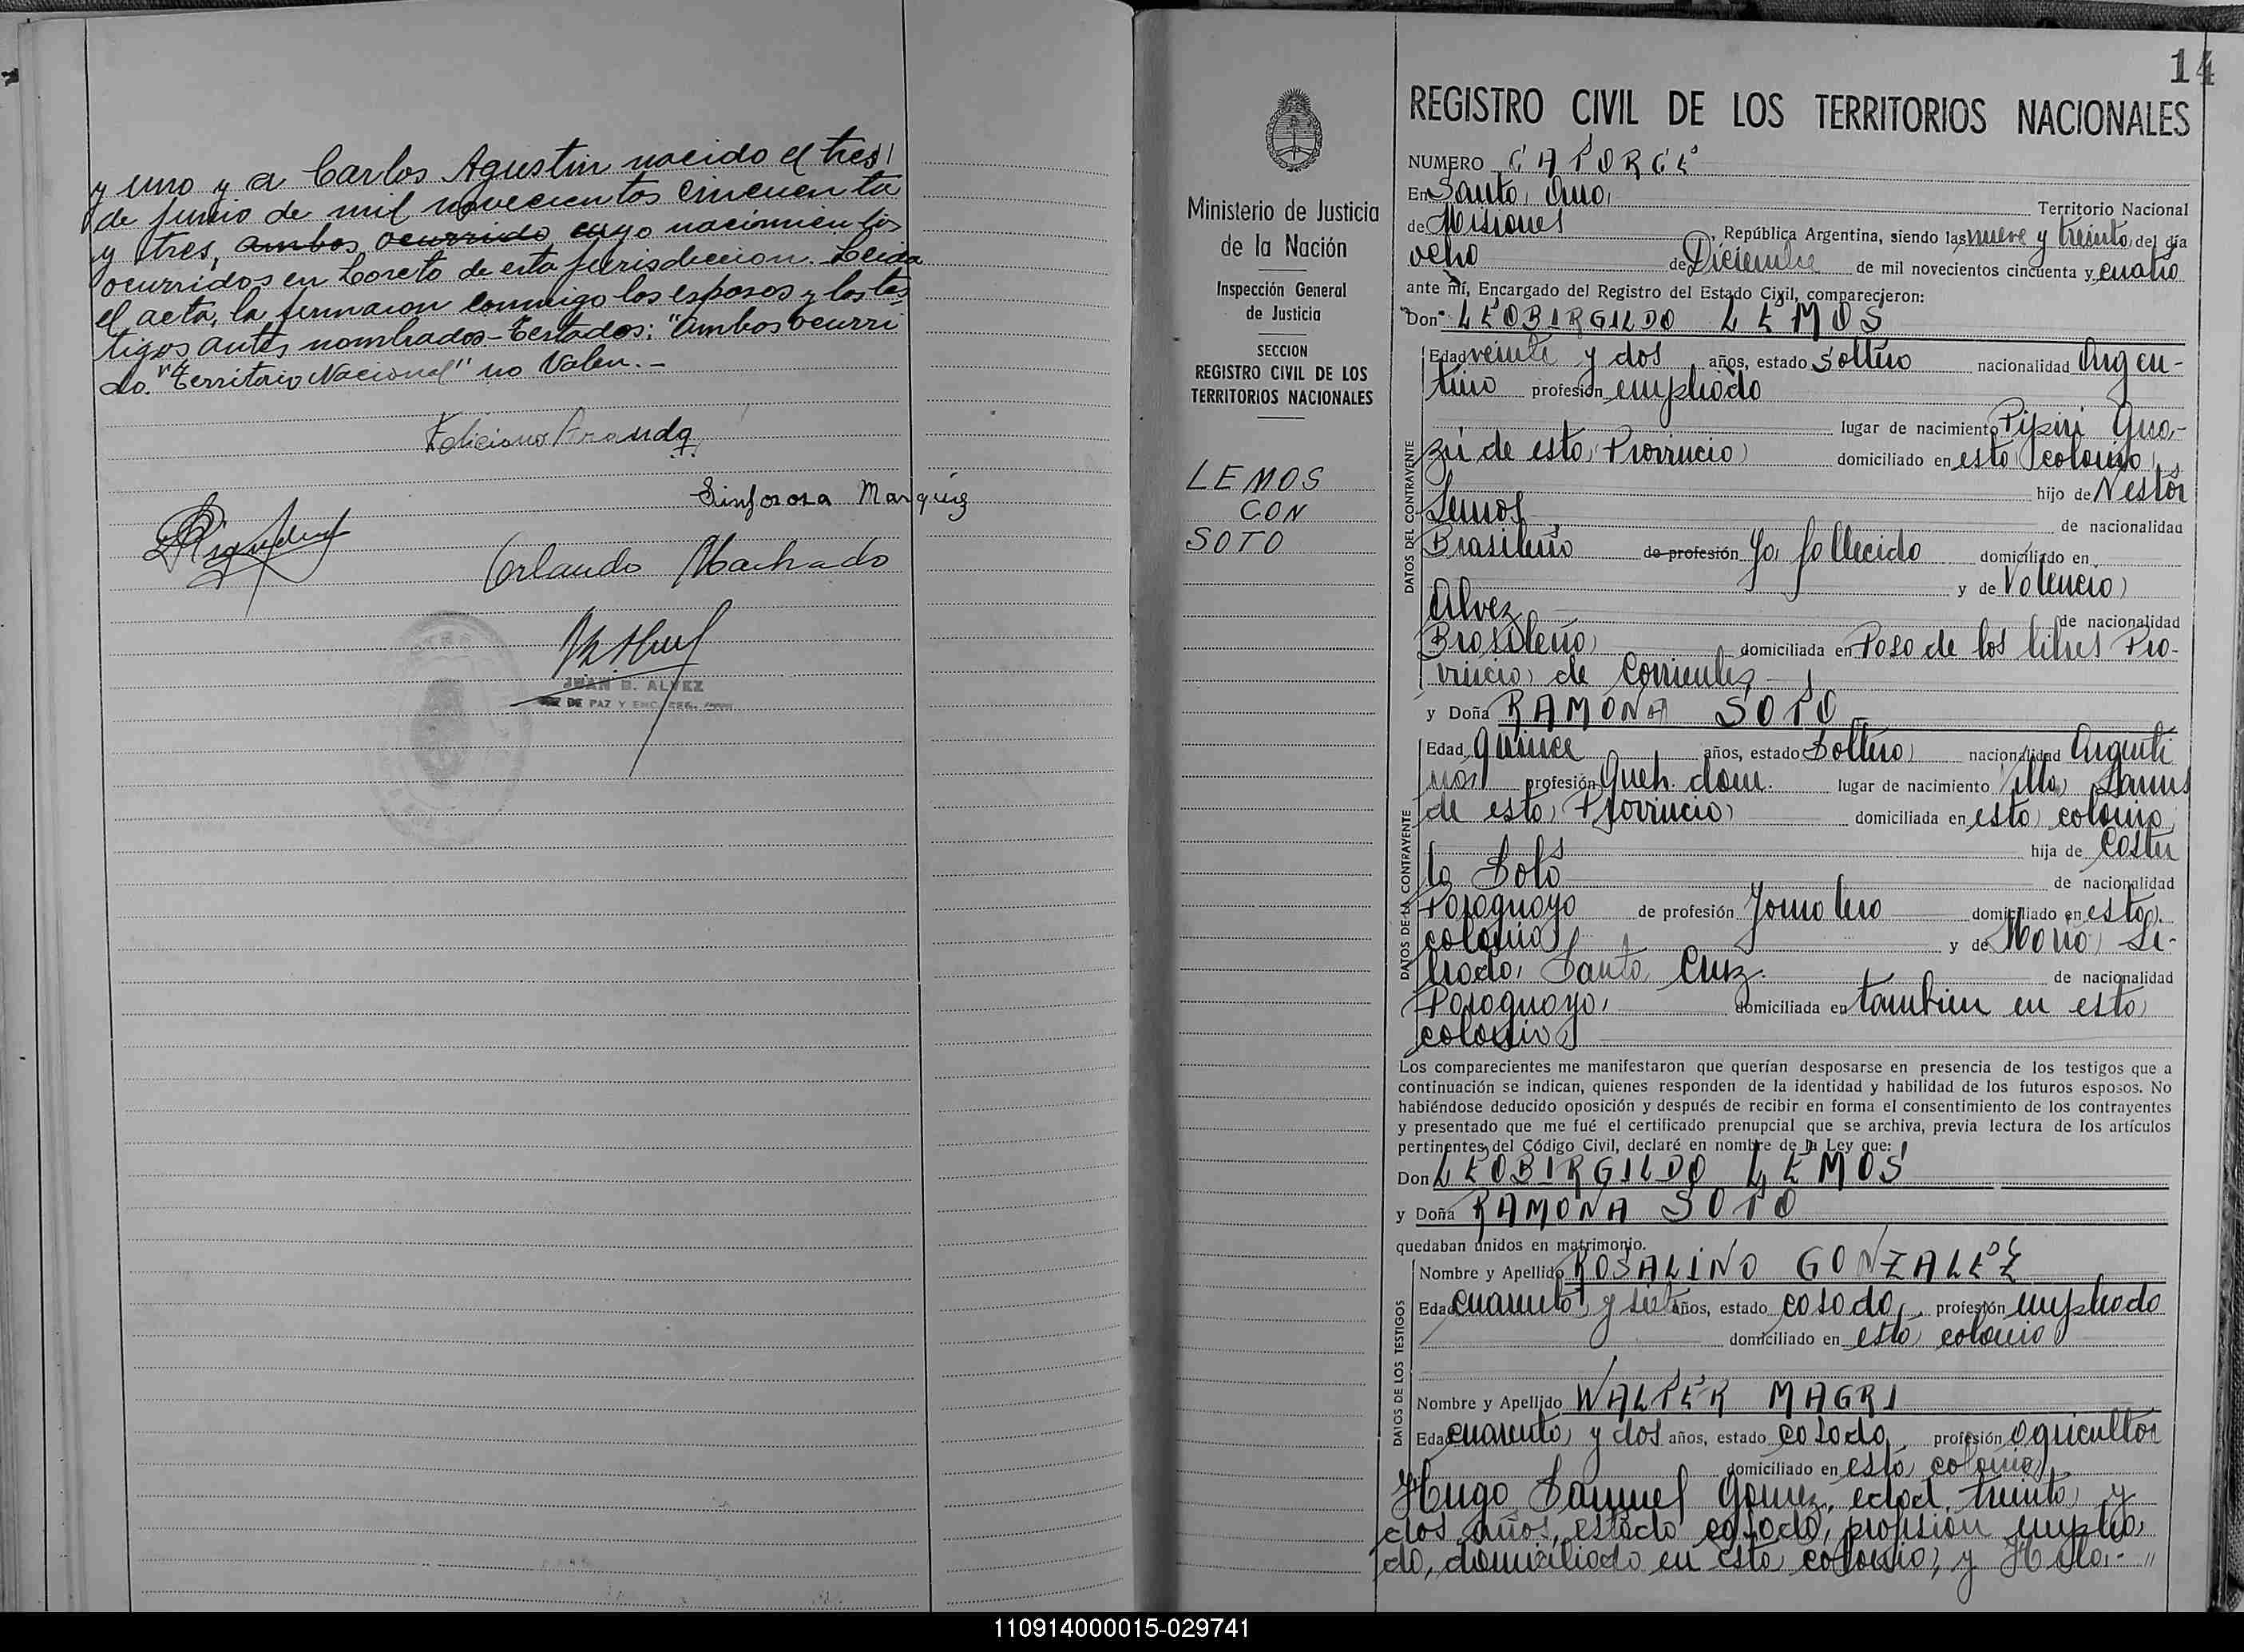 y uno y a Carlos Agustin nacido el tres
de junio de mil novecientos cincuenta
y tres, ambos ocurrido cuyo nacimientos
ocurridos en Loreto de esta jurisdiccion. Leida
el acta, la firmaron conmigo los esposos y los tes
tigos antes nombrados - Testados: "Ambos ocurri
do. "Territorio Nacional" no Valen. -
Feliciano Aranda
Sinforosa Marquez
Orlando Machado
JUAN B. ALVEZ
DE PAZ Y ENC. REG.
Ministerio de Justicia
de la Nación
Inspección General
de Justicia
SECCION
REGISTRO CIVIL DE LOS
TERRITORIOS NACIONALES
LEMOS
CON
SOTO
14
REGISTRO CIVIL DE LOS TERRITORIOS NACIONALES
NUMERO CATORCE
En Santa Ana, Territorio Nacional
de Misiones, República Argentina, siendo las nueve y treinta, del día
ocho de Diciembre de mil novecientos cincuenta y cuatro
ante mí, Encargado del Registro del Estado Civil, comparecieron:
Don LEOBIRGILDO LEMOS
DATOS DEL CONTRAYENTE
Edad veinte y dos años, estado soltero nacionalidad Argen-
tino profesión empleado
lugar de nacimiento Pipiri Gua-
zú de esta Provincia domiciliado en esta colonia
hijo de Nestor
Lemos de nacionalidad
Brasileña de profesión ya fallecido domiciliado en
y de Valencia
Alvez de nacionalidad
Brasileña domiciliada en Paso de los libres Pro-
vincia de Corrientes
y Doña RAMONA SOTO
DATOS DE LA CONTRAYENTE
Edad quince años, estado Soltera nacionalidad Argenti
na profesión Queh. dom. lugar de nacimiento Villa Lanus
de esta Provincia domiciliada en esta colonia
hija de Caste
lo Soto de nacionalidad
Paraguaya de profesión Jornalero domiciliado en esta
colonia y de María Li-
brada Santa Cruz. de nacionalidad
Paraguaya domiciliada en tambien en esta
colonia
Los comparecientes me manifestaron que querían desposarse en presencia de los testigos que a
continuación se indican, quienes responden de la identidad y habilidad de los futuros esposos. No
habiéndose deducido oposición y después de recibir en forma el consentimiento de los contrayentes
y presentado que me fué el certificado prenupcial que se archiva, previa lectura de los artículos
pertinentes del Código Civil, declaré en nombre de la Ley que:
Don LEOBIRGILDO LEMOS
y Doña RAMONA SOTO
quedaban unidos en matrimonio.
DATOS DE LOS TESTIGOS
Nombre y Apellido ROSALINO GONZALEZ
Edad cuarenta y siete años, estado casado, profesión empleado
domiciliado en esta colonia
Nombre y Apellido WALTER MAGRI
Edad cuarenta y dos años, estado casado, profesión agricultor
domiciliado en esta colonia
Hugo Samuel Gomez, edad treinta y
dos años, estado casado, profesión emplea
do, domiciliado en esta colonia, y
110914000015-029741